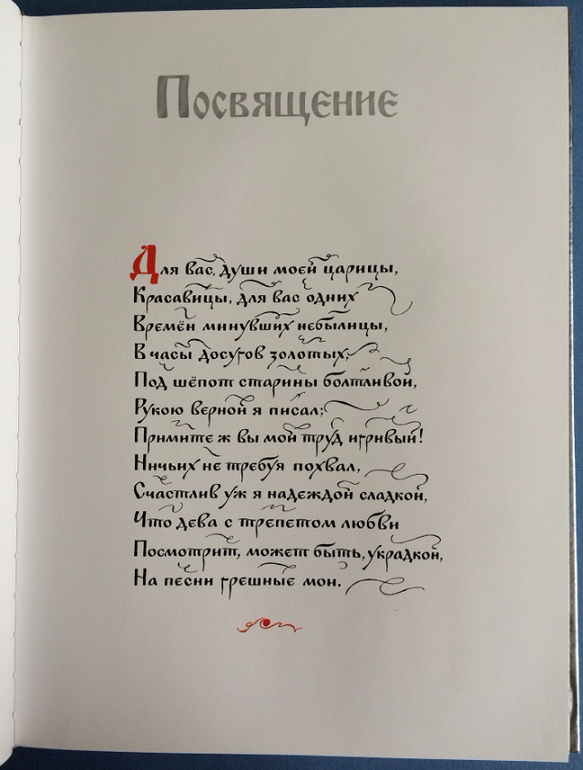 Посвящение
Для вас, души моей царицы,
Красавицы, для вас одних
Времён минувших небылицы,
В часы досугов золотых,
Под шёпот старины болтливой,
Рукою верной я писал;
Примите ж вы мой труд игривый!
Ничьих не требуя похвал,
Счастлив уж я надеждой сладкой,
Что дева с трепетом любви
Посмотрит, может быть, украдкой,
На песни грешные мои.